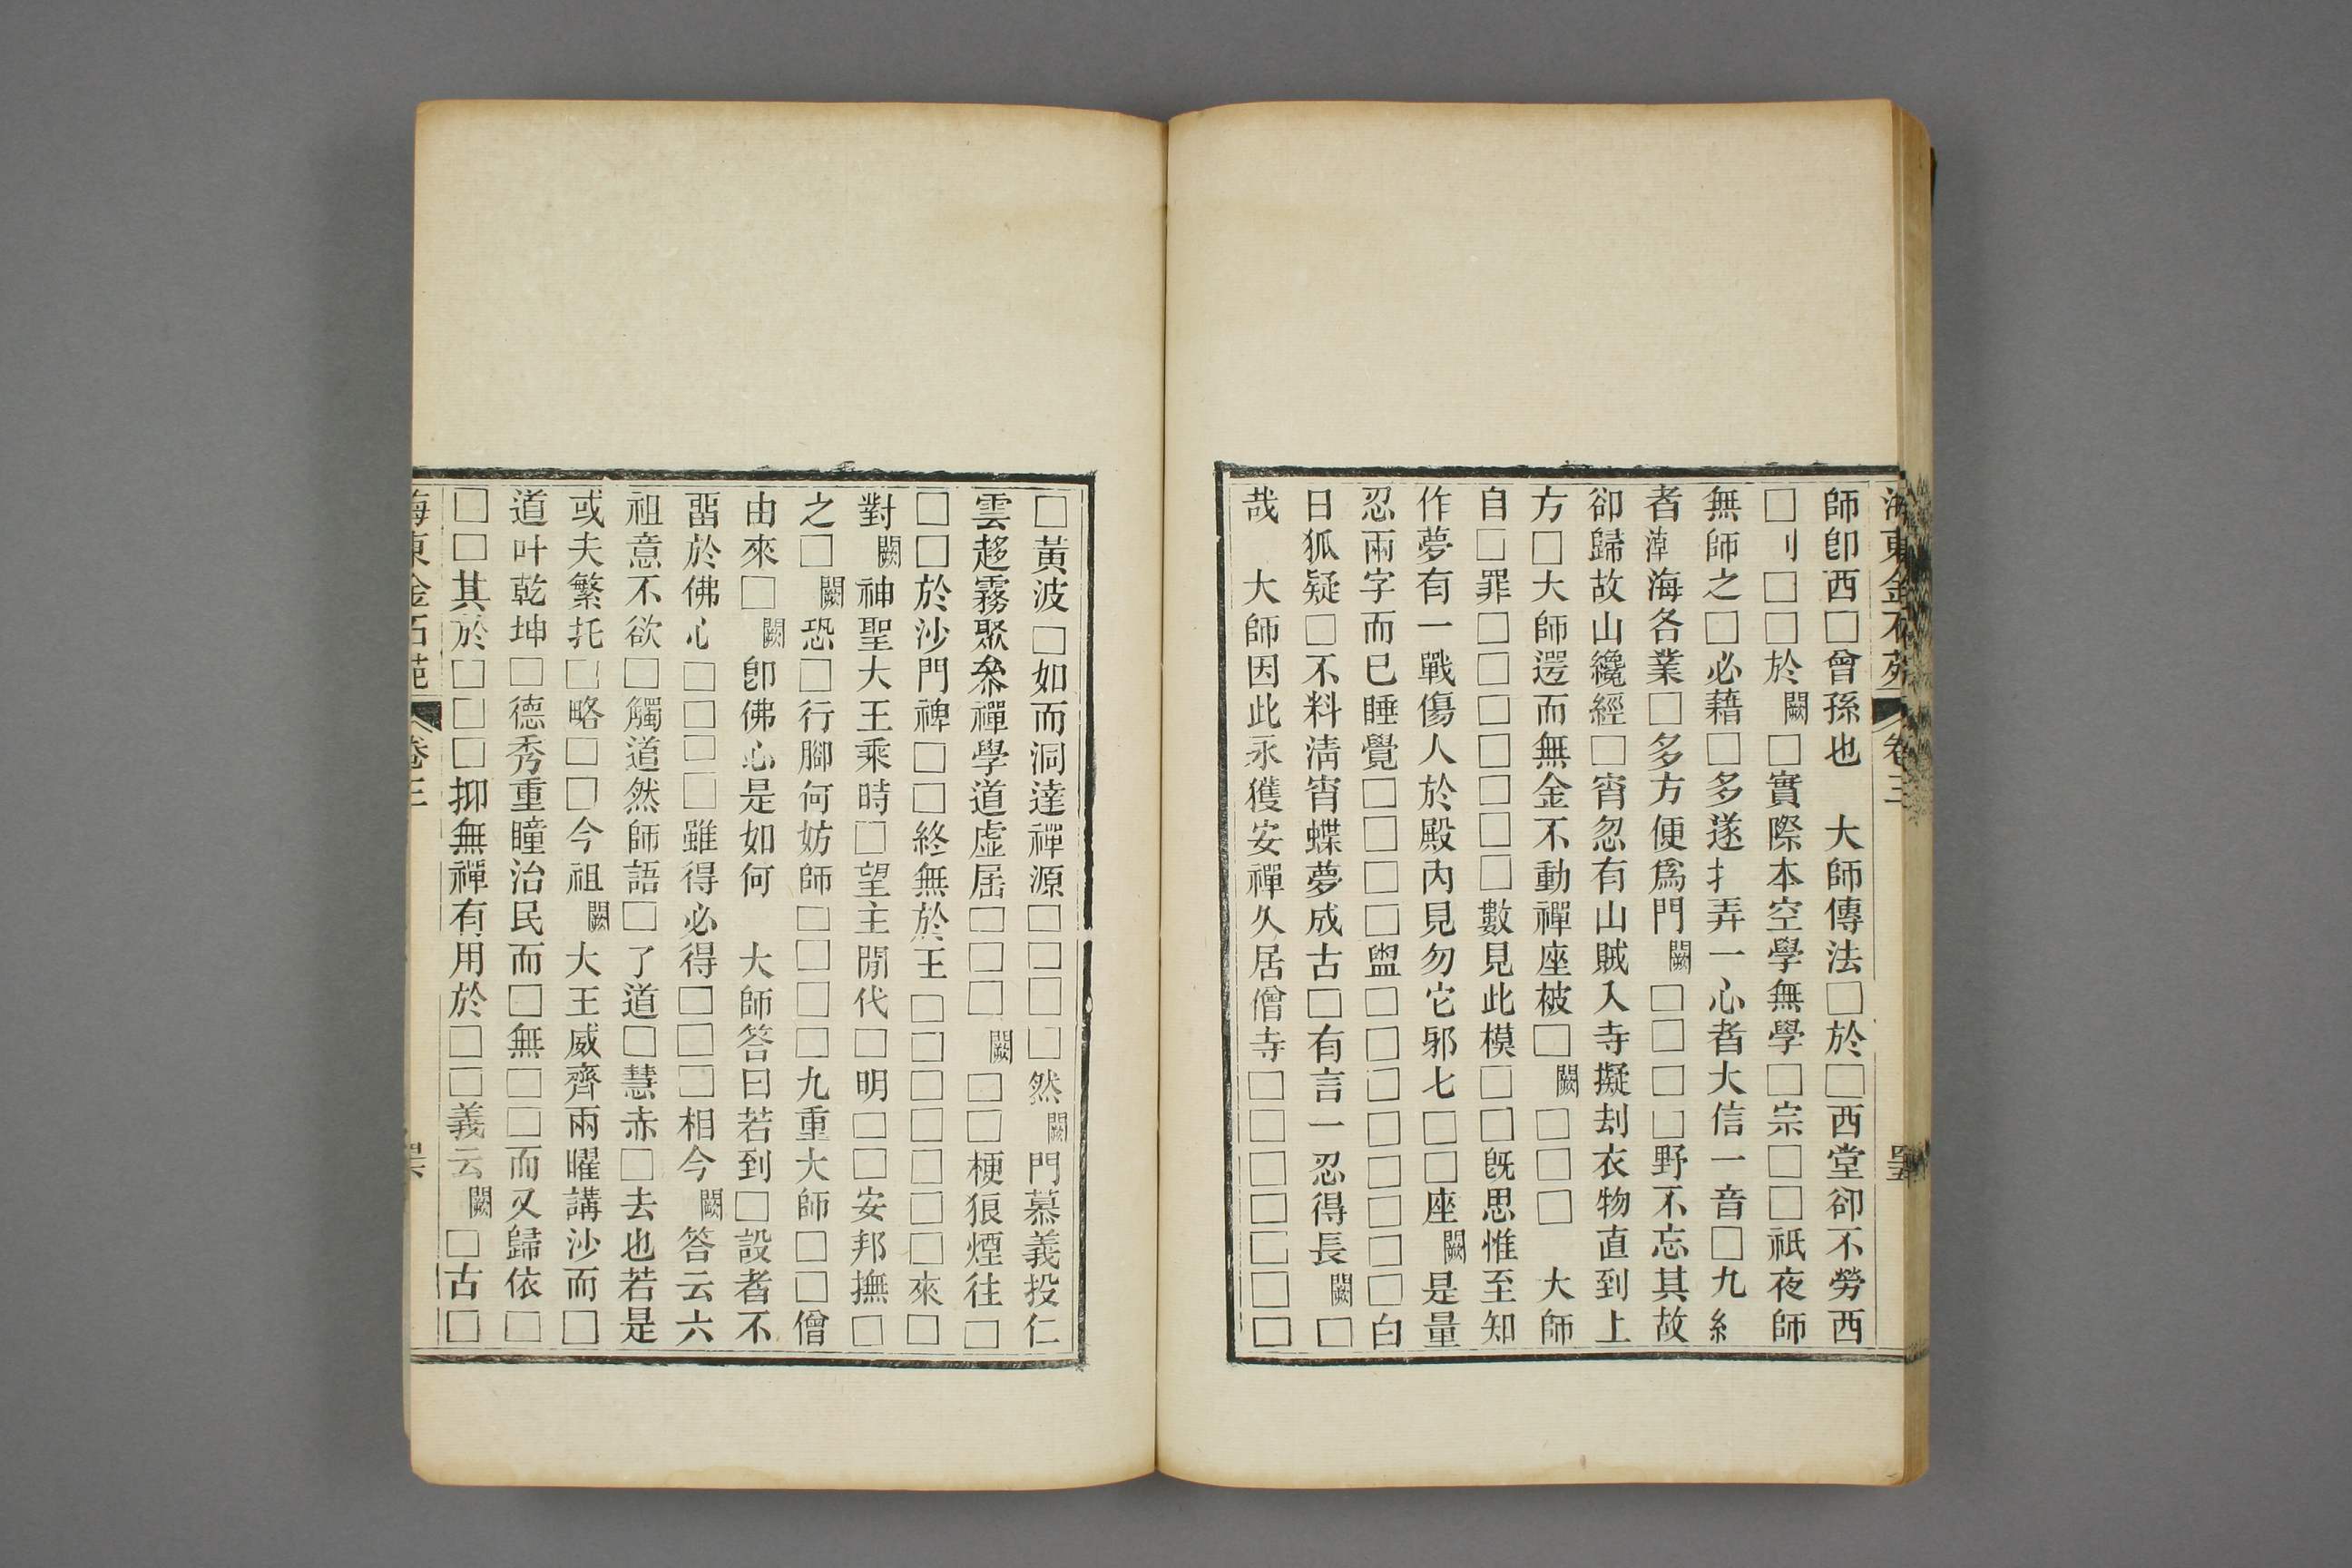 海東金石苑 卷三 四五
師卽西□曾孫也　大師傳法□於□西堂卻不勞西
□刂□□於闕□實際本空學無學□宗□□祇夜師
無師之□必藉□多遂扌弄一心者大信一音□九糹
者漳海各業□多方便爲門闕□□□□野不忘其故
卻歸故山纔經□宵忽有山賊入寺擬刦衣物直到上
方□大師遌而無金不動禪座被□闕□□□　大師
自□罪□□□□□□□數見此模□□旣思惟至知
作夢有一戰傷人於殿內見勿它邪七□□座闕是量
忍兩字而已睡覺□□□□盥□□□□□□□□白
日狐疑□不料淸宵蝶夢成古□有言一忍得長闕□
哉　大師因此永獲安禪久居僧寺□□□□□□□
□黃波□如而洞達禪源□□□□然闕門慕義投仁
雲趍霧聚叅禪學道虛屆□□□闕□□梗狼煙往□
□□於沙門禆□□終無於王□□□□□□□來□
對闕神聖大王乘時□望主閒代□明□□安邦撫□
之□闕恐□行腳何妨師□□□□九重大師□□僧
由來□闕卽佛心是如何　大師答曰若到□設者不
畱於佛心□□□□雖得必得□□□相今闕答云六
祖意不欲□觸道然師語□了道□慧赤□去也若是
或夫繁托□略□□今祖闕大王威齊兩曜講沙而□
道叶乾坤□德秀重瞳治民而□無□□而又歸依□
□□其於□□□抑無禪有用於□□義云闕□古□
海東金石苑 卷三